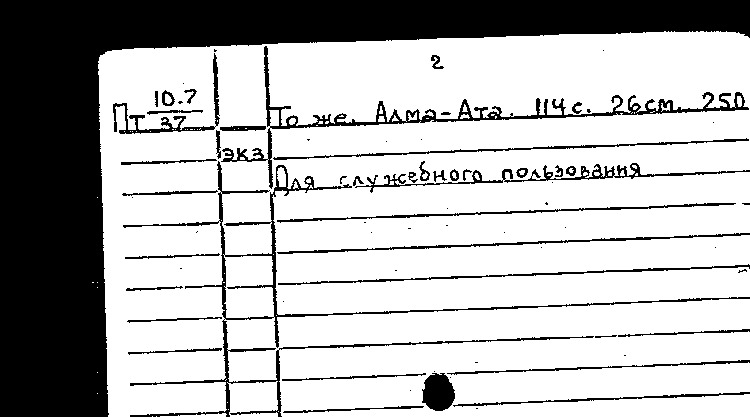 2
Пт 10.7/37 То же. Алма-Ата. 114 с. 26 см. 250
экз
Для служебного пользования